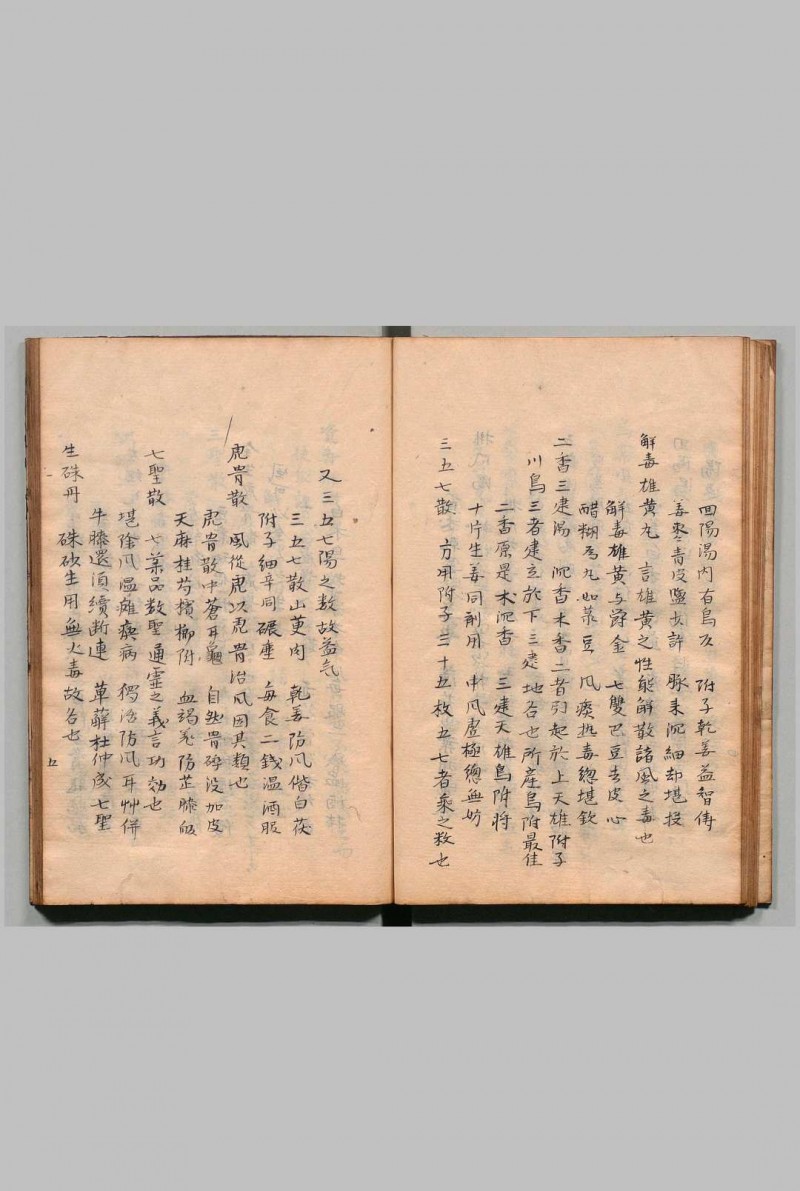 回陽湯內有烏頭 附子乾姜益智傳
姜枣青皮鹽少許 脉来沉細却堪投
解毒雄黃丸 言雄黃之性能解散諸風之毒也
解毒雄黃与欝金 七雙巴豆去皮心
醋糊為丸如菉豆 风痰热毒總堪欽
二香三建湯 沉香木香二者引起於上天雄附子
川烏三者建立於下三建地名也所產烏附最佳
二香原是木沉香 三建天雄烏附將
十片生姜同剤用 中风虛極總無妨
三五七散 方用附子三十五枚五七者乘之数也
又三五七陽之数故益气
三五七散山萸肉 乾姜防风偕白茯
附子細辛同碾塵 每食二錢温酒服
虎骨散 风從虎以虎骨治风因其類也
虎骨散中蒼耳龜 自然骨碎没加皮
天麻桂芍檳榔附 血竭羌防芷膝歸
七聖散 七葉品数聖通靈之義言功効也
堪除风温癱瘓病 獨活防风耳艸併
牛膝還須續断連 萆薢杜仲成七聖
生硃丹 硃砂生用無火毒故名也
五